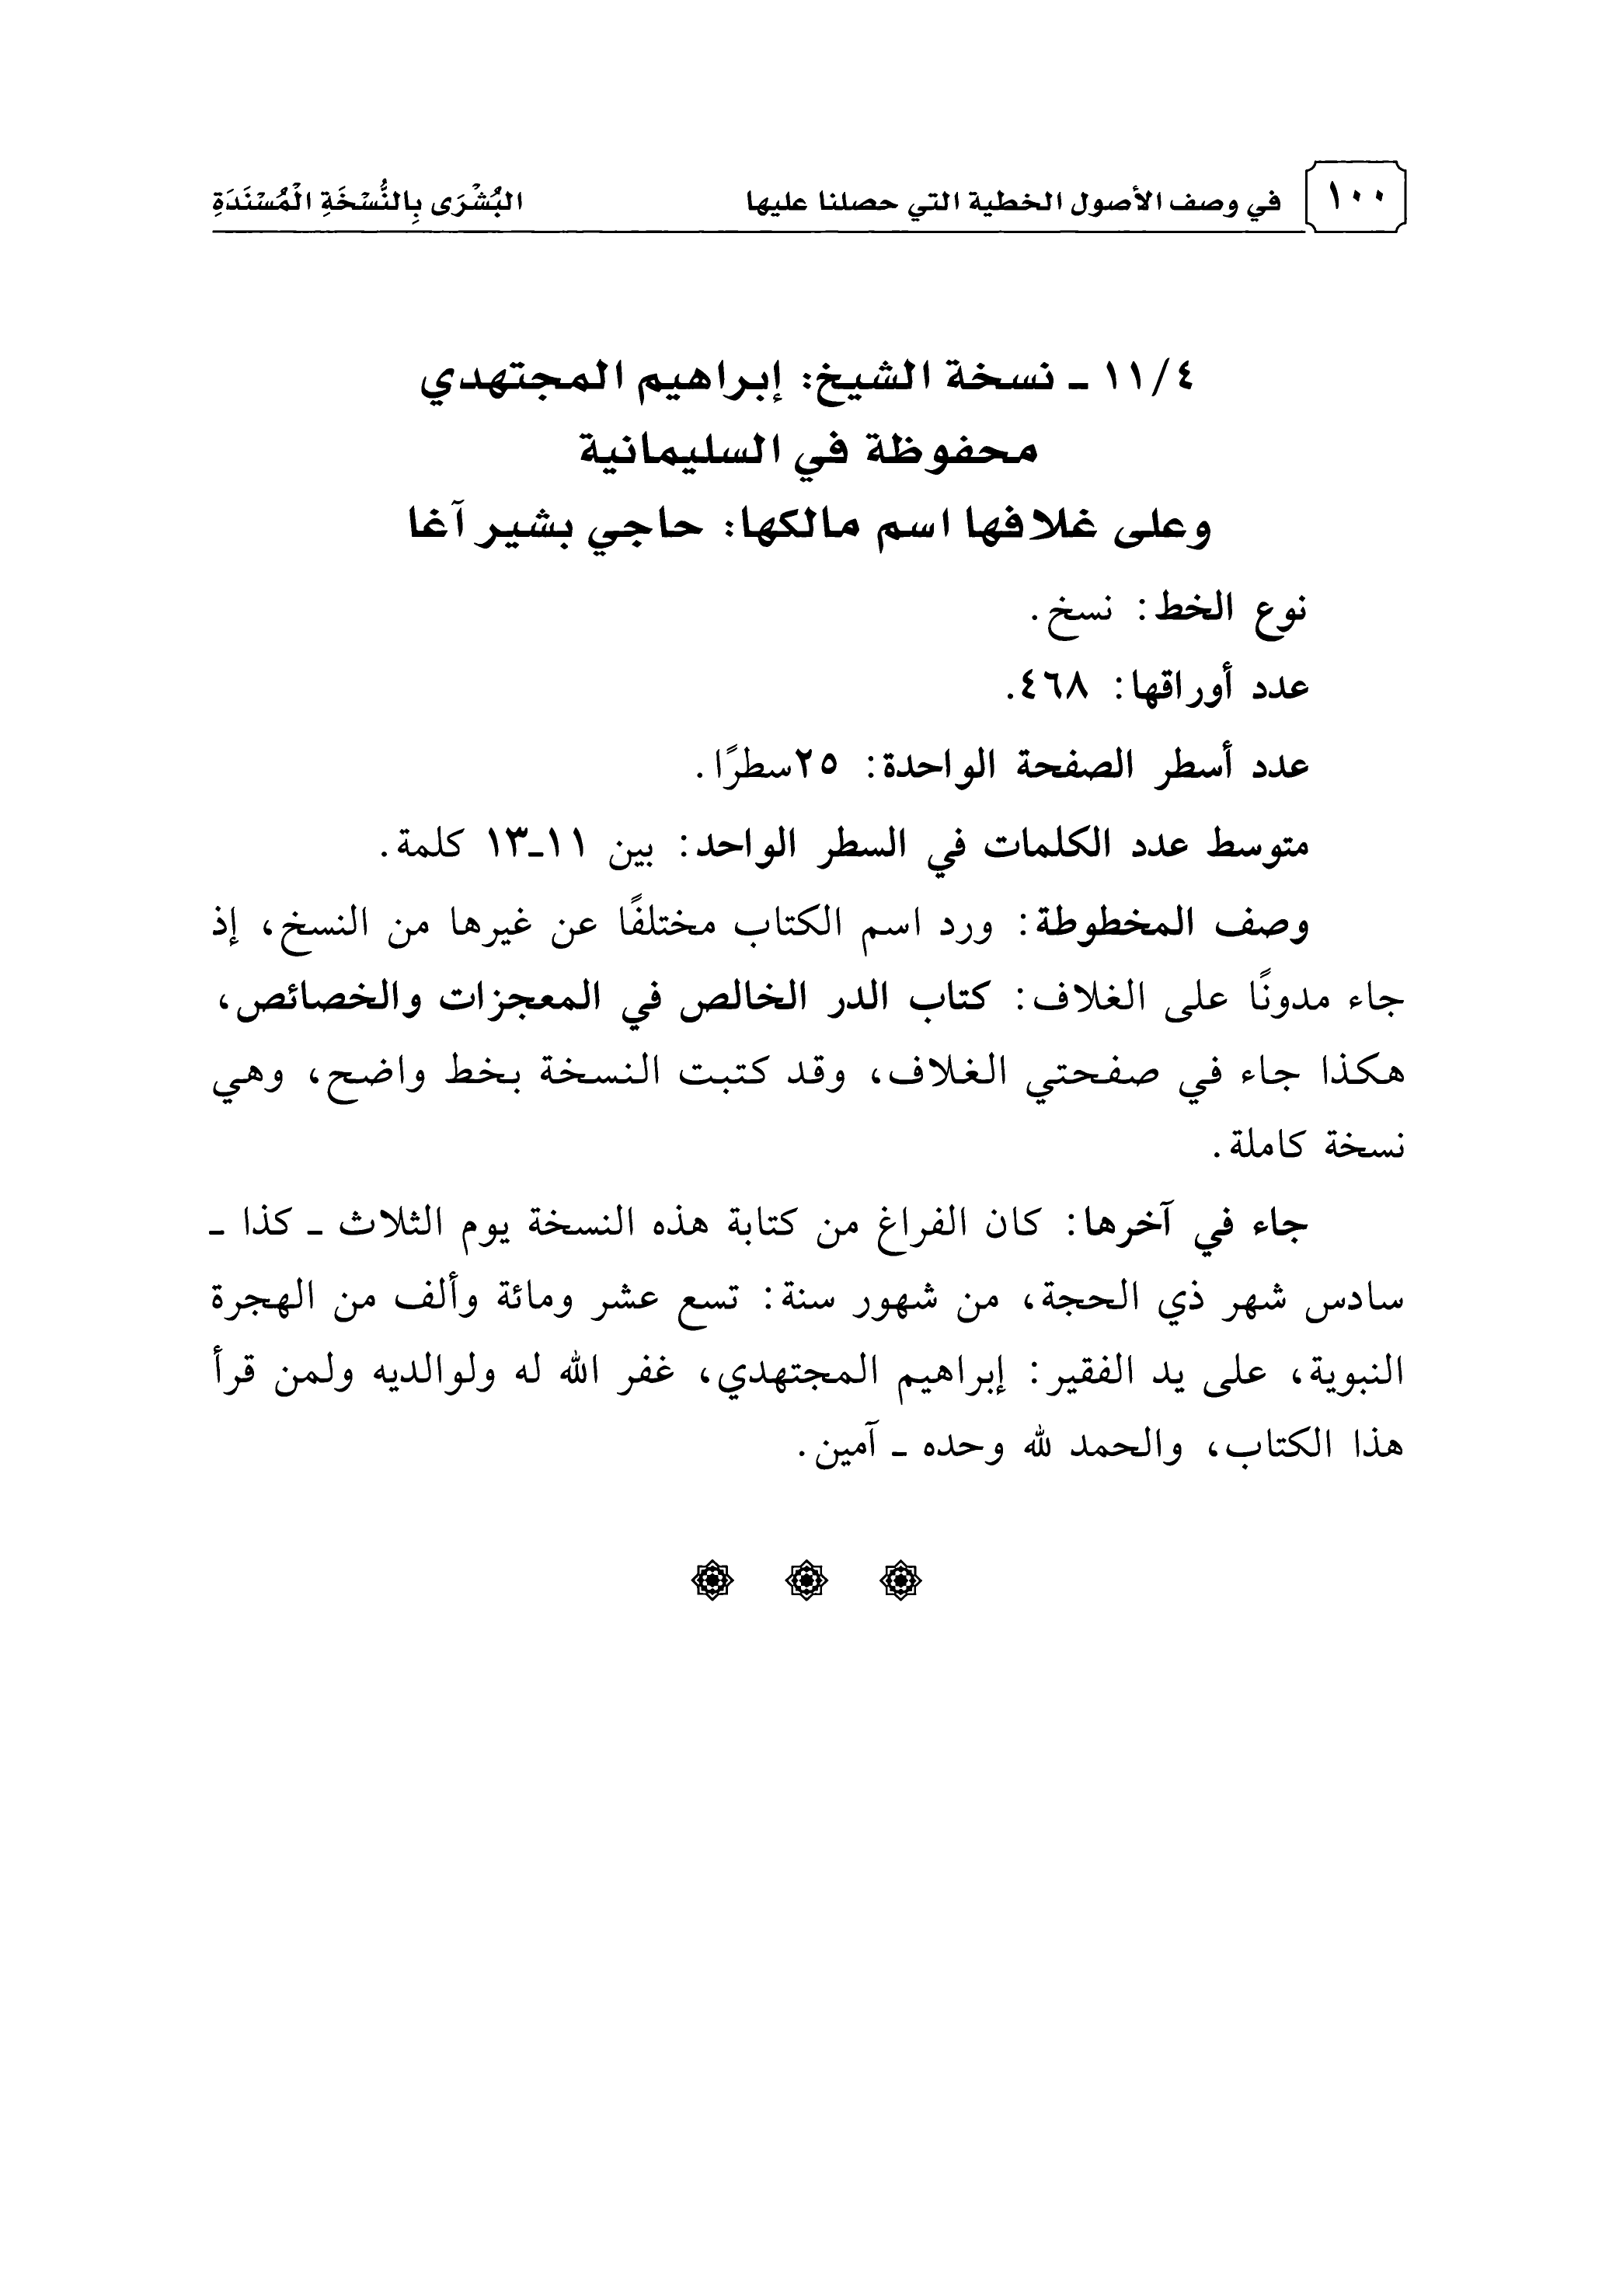 ١٠٠ في وصف الأصول الخطية التي حصلنا عليها البُشْرَى بِالنُّسْخَةِ الْمُسْنَدَةِ
١١/٤ ـ نسخة الشيخ: إبراهيم المجتهدي
محفوظة في السليمانية
وعلى غلافها اسم مالكها: حاجي بشير آغا
نوع الخط: نسخ.
عدد أوراقها: ٤٦٨.
عدد أسطر الصفحة الواحدة: ٢٥سطرًا.
متوسط عدد الكلمات في السطر الواحد: بين ١١ـ١٣ كلمة.
وصف المخطوطة: ورد اسم الكتاب مختلفًا عن غيرها من النسخ، إذ
جاء مدونًا على الغلاف: كتاب الدر الخالص في المعجزات والخصائص،
هكذا جاء في صفحتي الغلاف، وقد كتبت النسخة بخط واضح، وهي
نسخة كاملة.
جاء في آخرها: كان الفراغ من كتابة هذه النسخة يوم الثلاث ـ كذا ـ
سادس شهر ذي الحجة، من شهور سنة: تسع عشر ومائة وألف من الهجرة
النبوية، على يد الفقير: إبراهيم المجتهدي، غفر الله له ولوالديه ولمن قرأ
هذا الكتاب، والحمد لله وحده ـ آمين.